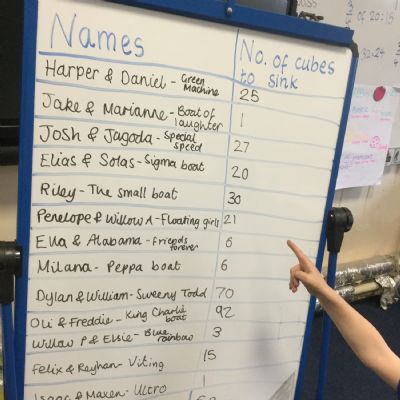 Names
No. of cubes to sink
Harper & Daniel - Green Machine 25
Jake & Marianne - Boat of laughter 1
Josh & Jagoda - Special speed 27
Elias & Sofas - Sigma boat 20
Riley - The small boat 30
Penelope & Willow A - Floating girls 21
Ella & Alabama - Friends forever 6
Milana - Peppa boat 6
Dylan & William - Sweeny Todd 70
Oli & Freddie - Kung Charlie boat 92
Willow P & Elsie - Blue rainbow 3
Felix & Rayhan - Viting 15
Isaac & Maxen - Ultro 1
of 20 = 15